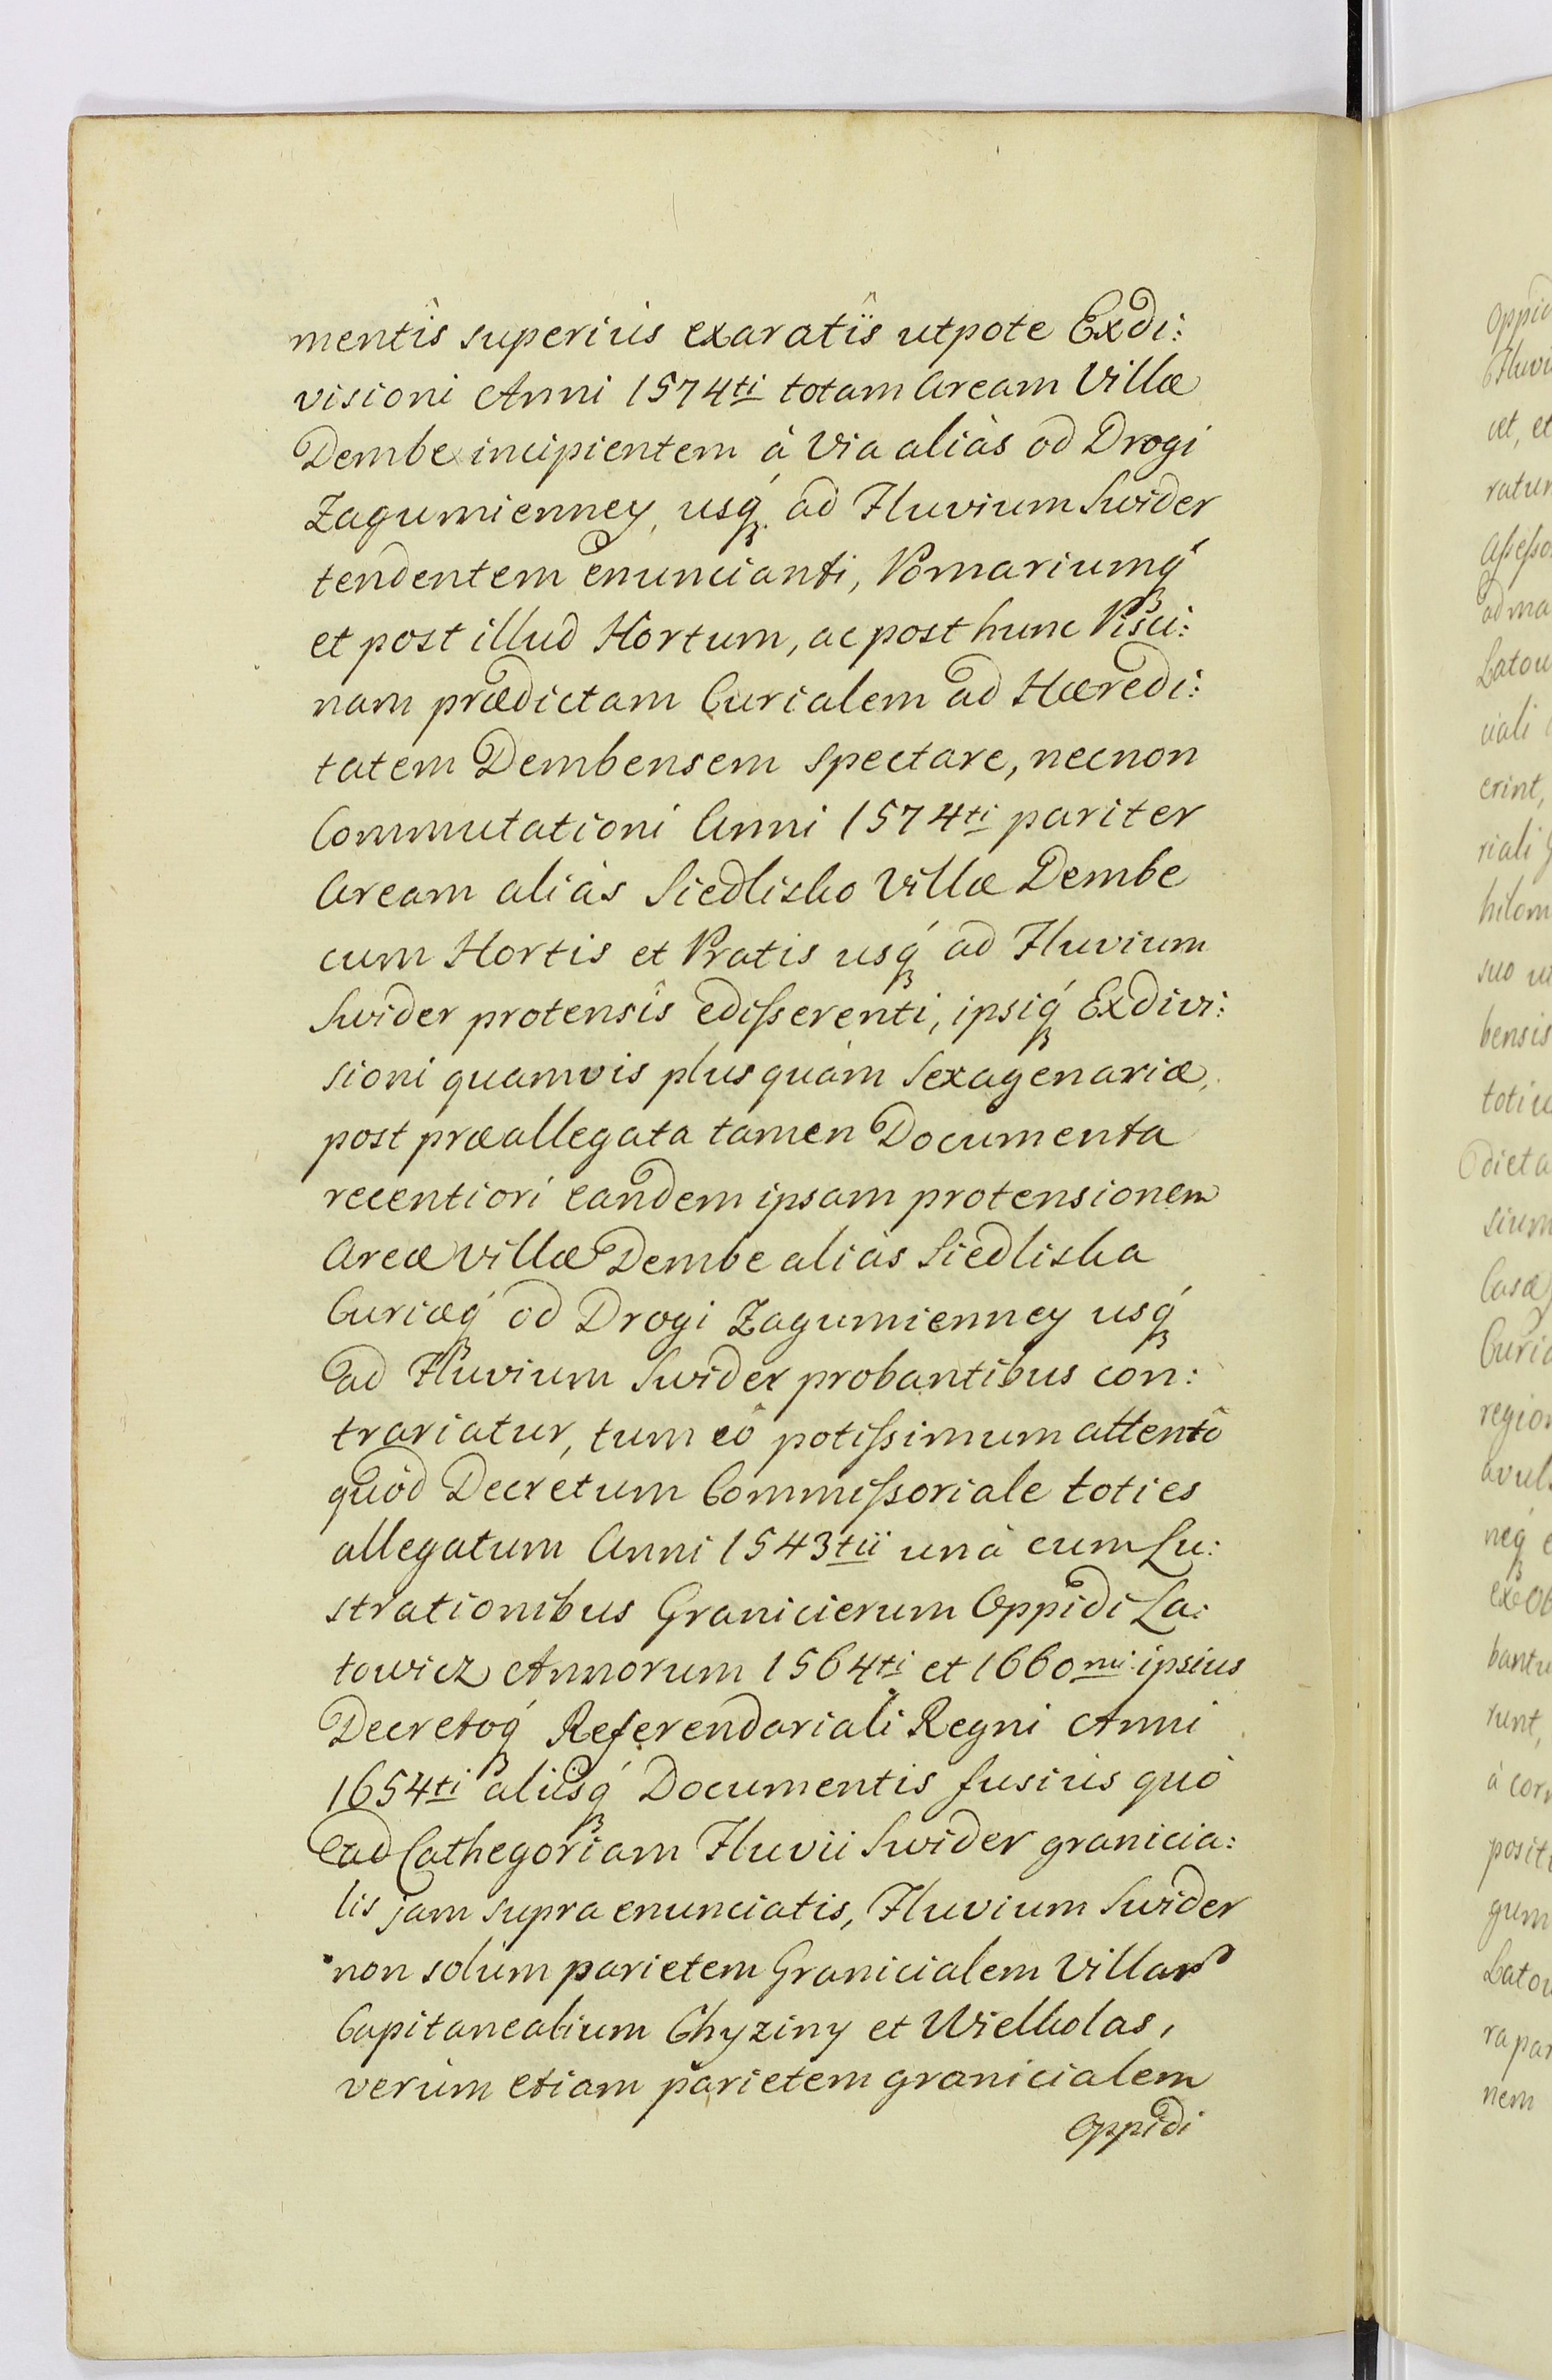 mentîs superiùs exaratîs utpote Exdi:
visioni Anni 1574ti totam Aream Villæ
Dembe incipientem à Via aliàs od Drogi
Zagumienney, usq́ꝫ ad Fluvium Swider
tendentem enuncianti, Pomariumq́ꝫ
et post illud Hortum, ac post hunc Pisci:
nam prædictam Curialem ad Hæredi:
tatem Dembensem spectare, necnon
Commutationi Anni 1574ti pariter
Aream aliàs Siedlisko Villæ Dembe
cum Hortis et Pratis usq́ꝫ ad Fluvium
Swider protensîs edisserenti, ipsiq́ꝫ Exdivi:
sioni quamvis plusquàm Sexagenariæ,
post præallegata tamen Documenta
recentiori eandem ipsam protensionem
Areæ Villæ Dembe aliàs Siedliska
Curiæq́ꝫ od Drogi Zagumienney usq́ꝫ
ad Fluvium Swider probantibus con:
trariatur, tum eô potissimum attentô
quòd Decretum Commissoriale toties
allegatum Anni 1543tii unà cum Lu:
strationibus Granicierum Oppidi La:
towicz Annorum 1564ti et 1660mi ipsius
Decretoq́ꝫ Referendariali Regni Anni
1654ti aliisq́ꝫ Documentis fusiùs quò
ad Cathegoriam Fluvii Swider granicia:
lis jam supra enunciatis, Fluvium Swider
non solùm parietem Granicialem Villarꝫ
Capitanealium Chyziny et Wielkolas,
verùm etiam parietem granicialem
Oppidi
Oppid
Fluvi
et, et
ratur
Assesso
ad ma
Latow
ciali
erint,
riali
hilom
suo
bensis
toti
dicta
sium
Casæ
Curi
region
avul
neq́ꝫ
ex Ob
bantu
runt,
à cor
posit
gum
Latow
ra par
nem